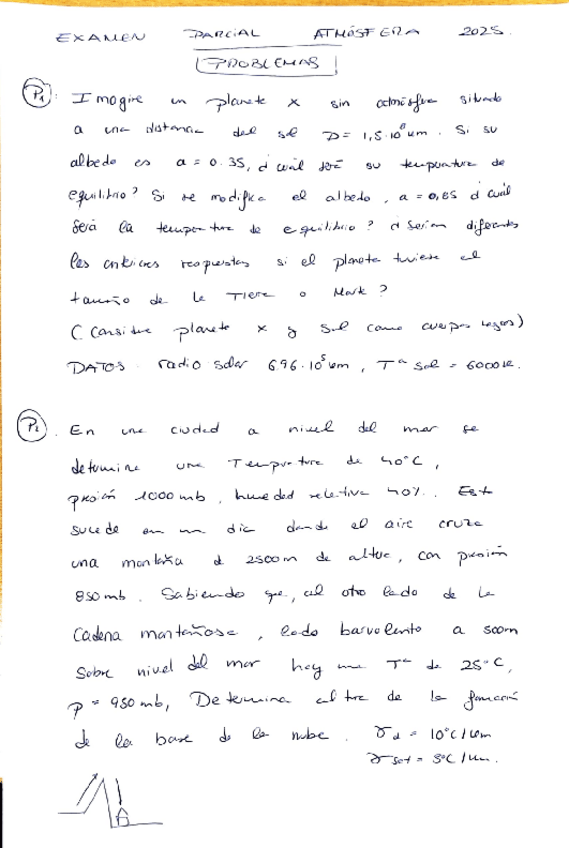 EXAMEN PARCIAL ATMÓSFERA 2025.
PROBLEMAS
P1: Imagine un planeta x sin atmósfera situado
a una distancia del sol D = 1,5·10⁸ km. Si su
albedo es a = 0.35, ¿cuál será su temperatura de
equilibrio? Si se modifica el albedo, a = 0,85 ¿cuál
será la temperatura de equilibrio? ¿Serían diferentes
las anteriores respuestas si el planeta tuviese el
tamaño de la Tierra o Marte?
(Considere planeta x y sol como cuerpos negros)
DATOS radio solar 6.96·10⁵ km, Tª sol = 6000 K.
P2. En una ciudad a nivel del mar se
determina una Temperatura de 40°C,
presión 1000 mb, humedad relativa 40%. Esto
sucede en un día donde el aire cruza
una montaña de 2500 m de altura, con presión
850 mb. Sabiendo que, al otro lado de la
cadena montañosa, lado barvolento a 500m
sobre nivel del mar hay una Tª de 25°C,
p = 950 mb, Determina altura de la formación
de la base de la nube. γd = 10°C/km
γsat = 5°C/km.